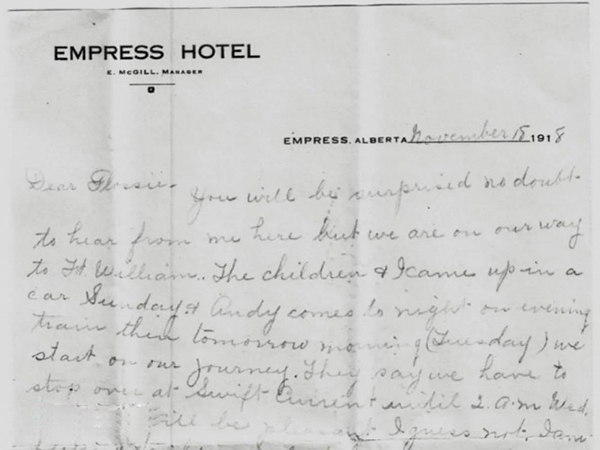 EMPRESS HOTEL
E. McGILL, MANAGER
EMPRESS, ALBERTA November 18 1918
Dear Flossie- You will be surprised no doubt
to hear from me here but we are on our way
to Ft. William. The children & I came up in a
car Sunday & Andy comes to night on evening
train then tomorrow morning (Tuesday) we
start on our journey. They say we have to
stop over at Swift Current until 2. a.m Wed.
will be pleasant I guess not, I am